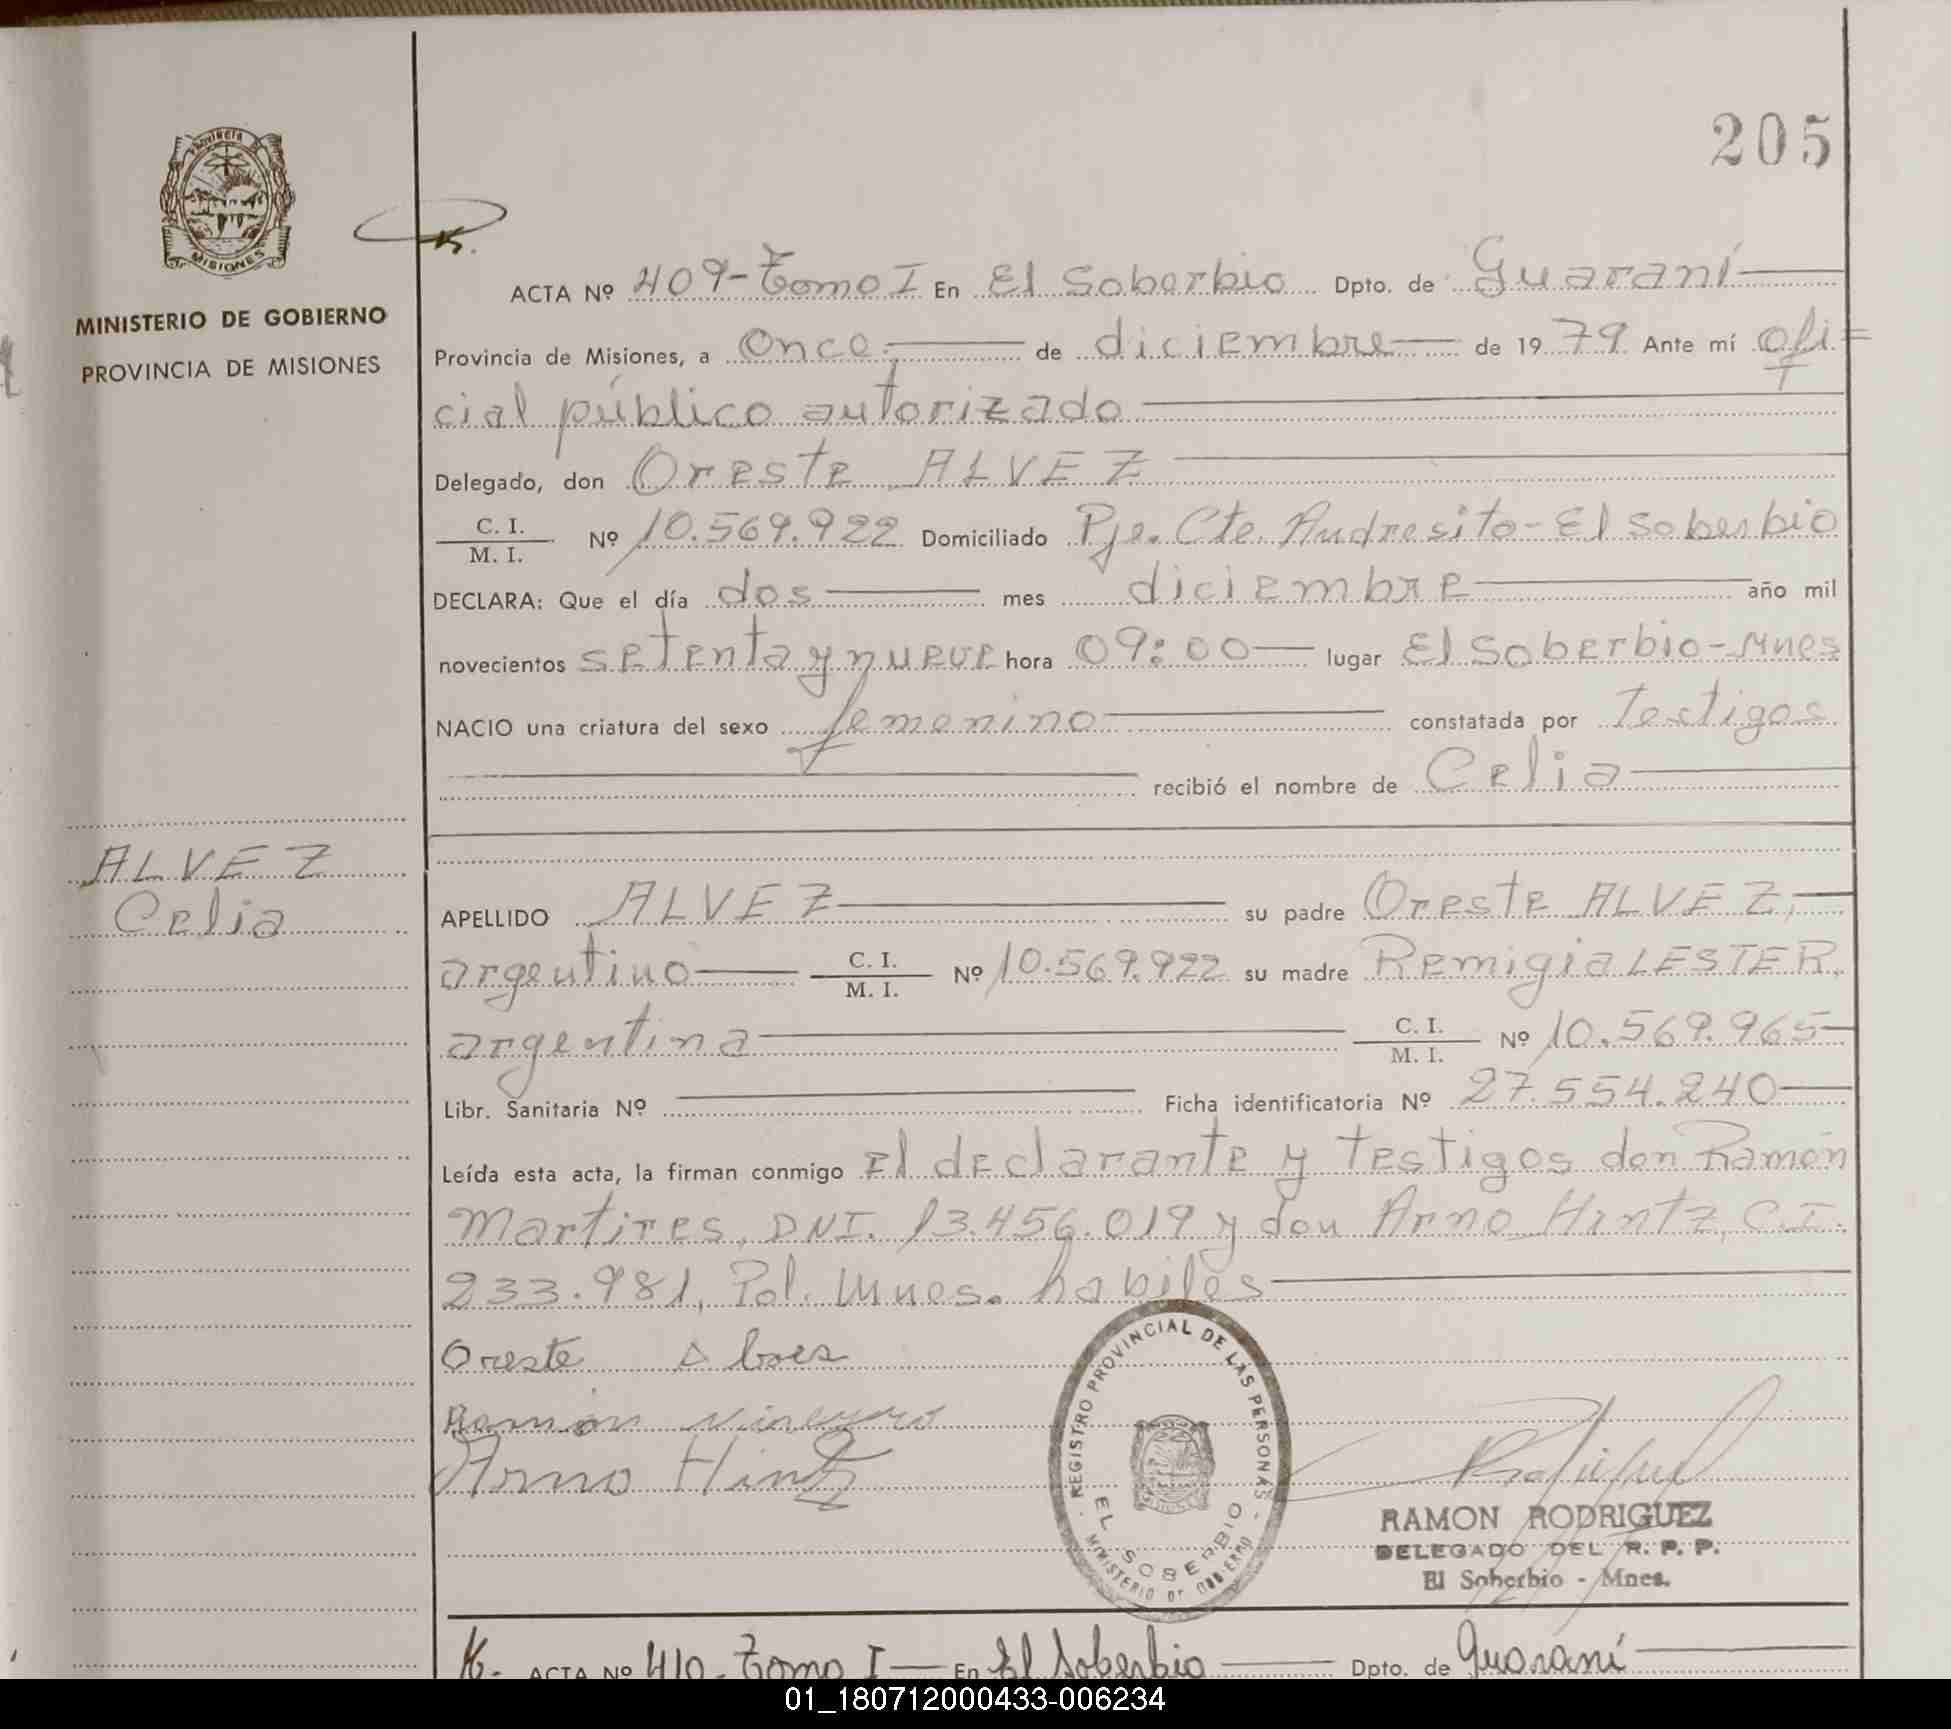 205
PROVINCIA
MISIONES
MINISTERIO DE GOBIERNO
PROVINCIA DE MISIONES
ACTA Nº 409-Tomo I En El Soberbio Dpto. de Guaraní
Provincia de Misiones, a Once de diciembre de 1979 Ante mí ofi=
cial público autorizado
Delegado, don Oreste ALVEZ
C. I.
M. I. Nº 10.569.922 Domiciliado Pje. Cte. Andresito-El Soberbio
DECLARA: Que el día dos mes diciembre año mil
novecientos setenta y nueve hora 09:00 lugar El Soberbio-Mnes
NACIO una criatura del sexo femenino constatada por Testigos
recibió el nombre de Celia
ALVEZ
Celia
APELLIDO ALVEZ su padre Oreste ALVEZ,
argentino C. I.
M. I. Nº 10.569.922 su madre Remigia LESTER,
argentina C. I.
M. I. Nº 10.569.965
Libr. Sanitaria Nº Ficha identificatoria Nº 27.554.240
Leída esta acta, la firman conmigo el declarante y testigos don Ramón
Martires, DNI. 13.456.019 y don Arno Hintz, C.I.
233.981, Pol. Mnes. habiles
Oreste
Ramon
Arno Hintz
REGISTRO PROVINCIAL DE LAS PERSONAS
EL SOBERBIO
MINISTERIO DE GOBIERNO
RAMON RODRIGUEZ
DELEGADO DEL R. P. P.
El Soberbio - Mnes.
ACTA Nº 410-Tomo I En El Soberbio Dpto. de Guaraní
01_180712000433-006234